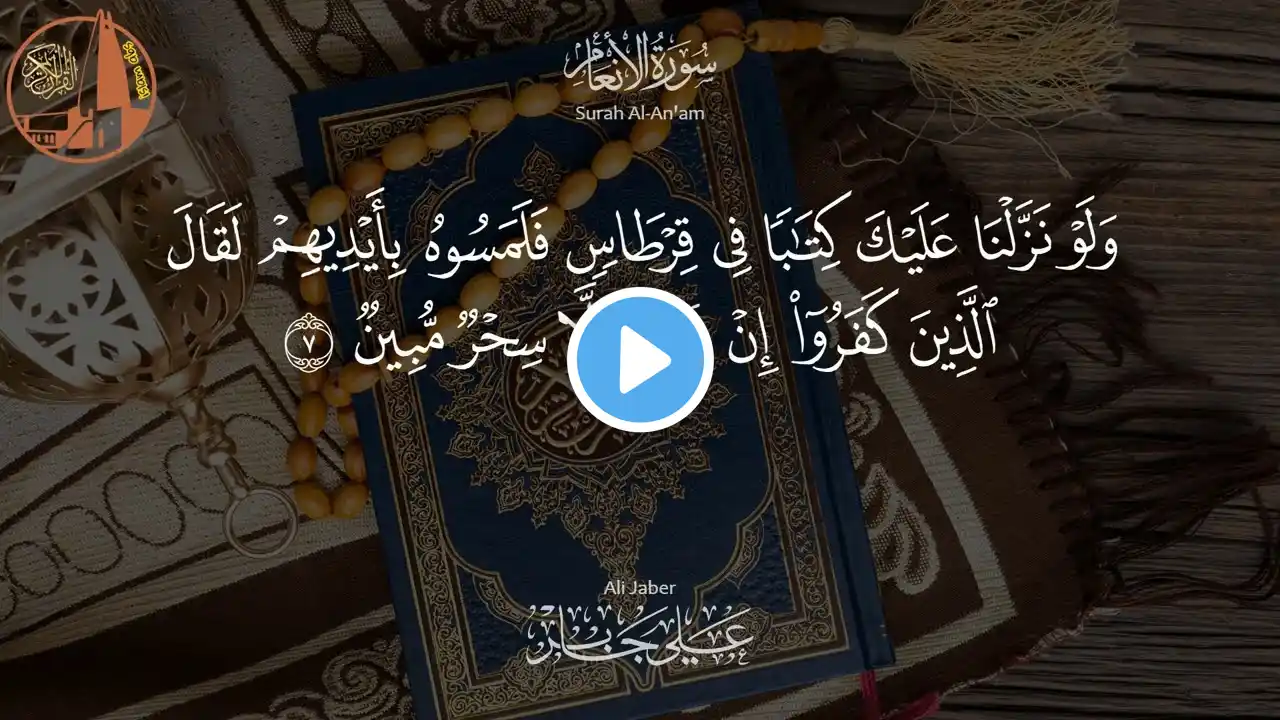 سُورَةُ الأَنْعَام
Surah Al-An'am
وَلَوْ نَزَّلْنَا عَلَيْكَ كِتَٰبًا فِى قِرْطَاسٍ فَلَمَسُوهُ بِأَيْدِيهِمْ لَقَالَ
ٱلَّذِينَ كَفَرُوٓا۟ إِنْ سِحْرٌ مُّبِينٌ ٧
Ali Jaber
عَلِي جَابِر